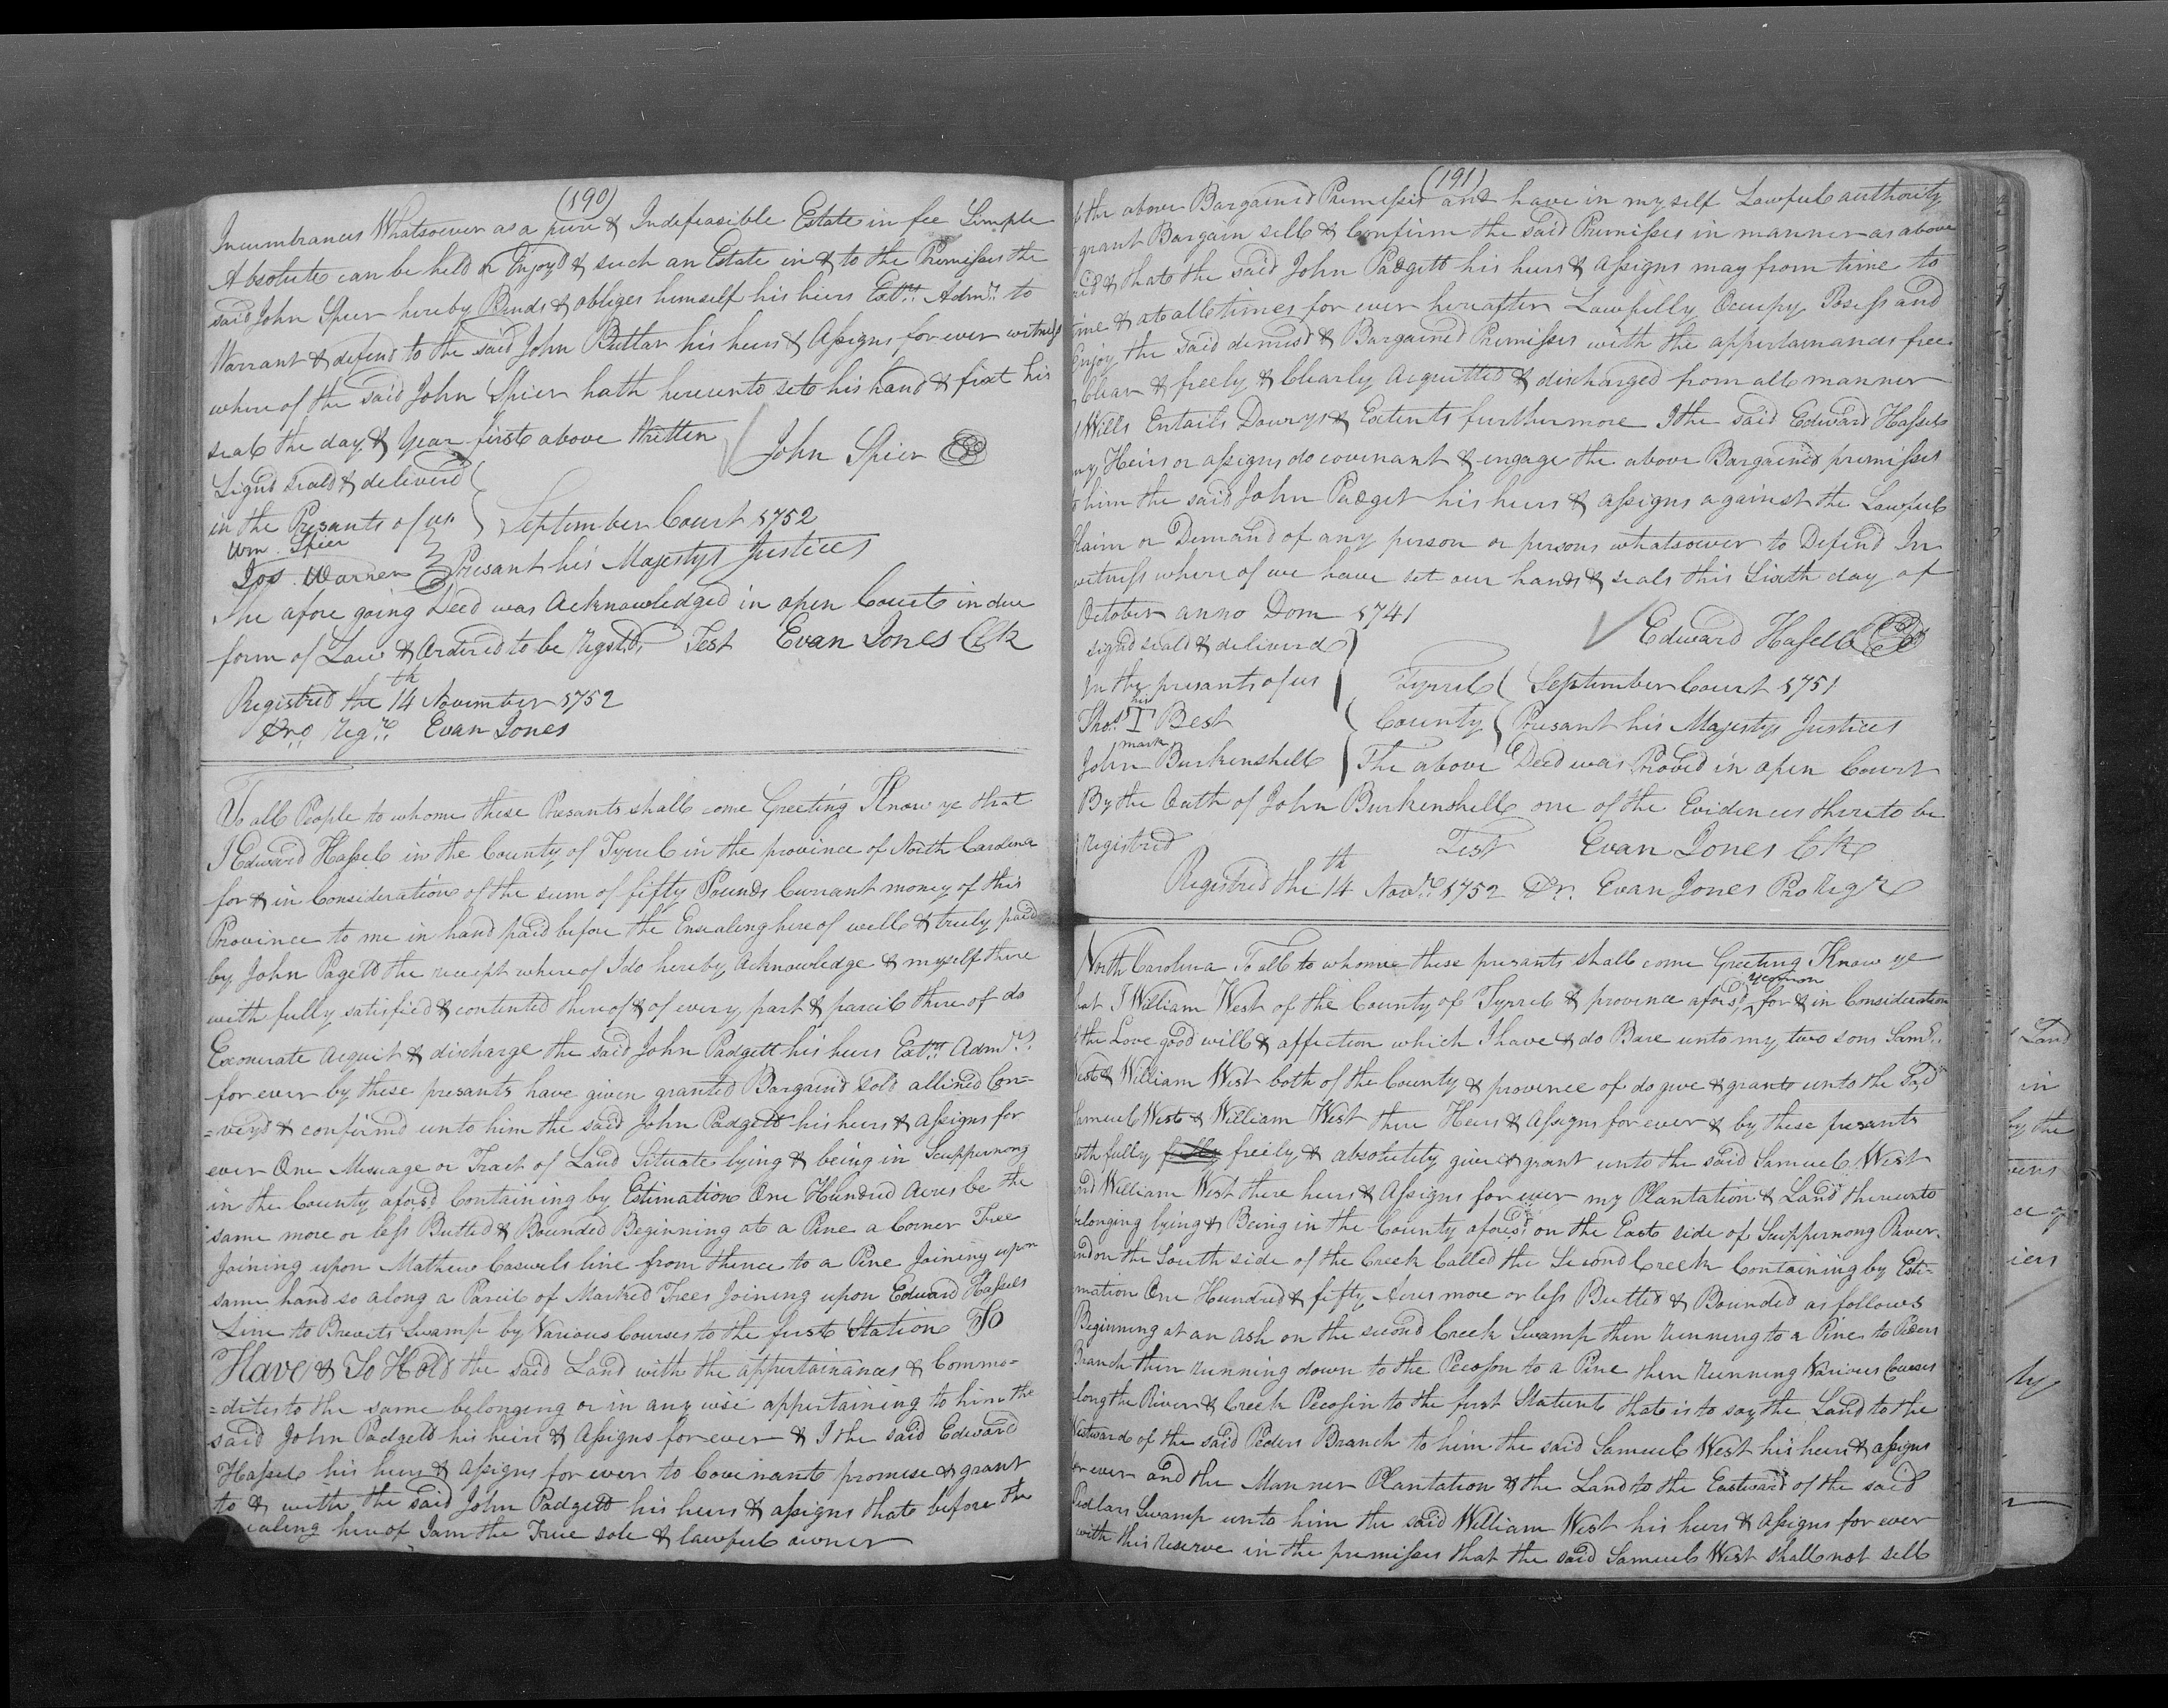 (190)
Incumbrances Whatsoever as a pure & Indefeasible Estate in fee Simple
Absolute can be held or Enjoyd & such an Estate in & to the Premisses the
said John Spier hereby Binds & obliges himself his heirs Exters Admrs to
Warrant & defend to the said John Buttar his heirs & Assigns for ever witness
where of the said John Spier hath hereunto sete his hand & fixt his
seal the day & year first above Written John Spier
Signd seald & deliverd
in the Presants of us September Court 1752
Wm. Spier
Jos. Warren Presant his Majestys Justices
The afore going Deed was Acknowledged in open Court in due
form of Law & Ordered to be Regstd. Test Evan Jones Clk
Registred the 14th November 1752
Evan Jones
To all People to whome these Presants shall come Greeting Know ye that
I Edward Hassel in the County of Tyrrel in the province of North Carolina
for & in Consideration of the sum of fifty Pounds Currant money of this
Province to me in hand paid before the Ensealing here of well & truly paid
by John Pagett the receipt where of I do hereby Acknowledge & myself there
with fully satisfied & contented there of & of every part & parcil there of do
Exonerate acquit & discharge the said John Padgett his heirs Exters Admrs
for ever by these presants have given granted Bargaind Sold allined Con=
=veyd & confirmd unto him the said John Padgett his heirs & assigns for
ever One Messuage or Tract of Land Situate lying & being in Scuppernong
in the County aforsd. Containing by Estimation One Hundred Acres be the
same more or less Butted & Bounded Beginning at a Pine a Corner Tree
Joining upon Mathew Caswels line from thence to a Pine Joining upon
same hand so along a Parcil of Marked Trees Joining upon Edward Hassels
Line to Brewets Swamp by Various Courses to the first Station To
Have & To Hold the said Land with the appertainances & Commo=
=dites to the same belonging or in any wise appertaining to him the
said John Padgett his heirs & Assigns for ever & I the said Edward
Hassel his heirs & assigns for ever to Covenant promise & grant
to & with the said John Padgett his heirs & assigns that before the
ealing here of I am the True sole & lawful owner
(191)
the above Bargained Premisses and have in my self Lawful authority
grant Bargain sell & Confirm the said Premisses in manner as above
& that the said John Padgett his heirs & assigns may from time to
& at all times for ever hereafter Lawfully Occupy Posess and
Enjoy the said demisd & Bargained Premisses with the appertainances free
Clear & freely & Clearly Acquitted & discharged from all manner
Wills Entails Dowrys & Extents furthermore I the said Edward Hassel
my Heirs or assigns do covenant & engage the above Bargained premisses
him the said John Padget his heirs & assigns against the Lawful
Claim or Demand of any person or persons whatsoever to Defend In
witness where of we have set our hands & seals this Sixth day of
October anno Dom 1741
Edward Hassell
signd seald & deliverd
In the presants of us Tyrrel September Court 1751
Thos. his T mark Best County Presant his Majestys Justices
John Burkenshell The above Deed was Proved in open Court
By the Oath of John Burkenshell one of the Evidences there to be
registred Test Evan Jones Clk
Registred the 14th Novr. 1752 Evan Jones Pro Regr
North Carolina To all to whome these presants shall come Greeting Know ye
that I William West of the County of Tyrrel & province aforsd, yeomon for & in Consideration
the Love good will & affection which I have & do Bare unto my two sons Saml.
West & William West both of the County & province of do give & grant unto the Syd
Samuel West & William West there Heirs & Assigns for ever & by these presants
doth fully freely & absolutely give & grant unto the said Samuel West
and William West there heirs & Assigns for ever my Plantation & Land thereunto
belonging lying & Being in the County aforsd on the East side of Scuppernong River
and on the South side of the Creek Called the Second Creek Containing by Esti=
mation One Hundred & fifty Acres more or less Butted & Bounded as follows
Beginning at an ash on the second Creek Swamp then running to a Pine to Peders
Branch then running down to the Pecoson to a Pine then running Various Courses
along the River & Creek Pecosin to the first Statient that is to say the Land to the
Westward of the said Peders Branch to him the said Samuel West his heirs & assigns
for ever and the Manner Plantation & the Land to the Eastward of the said
Pedlars Swamp unto him the said William West his heirs & Assigns for ever
with this reserve in the premisses that the said Samuel West shall not sell
Land
in
by the